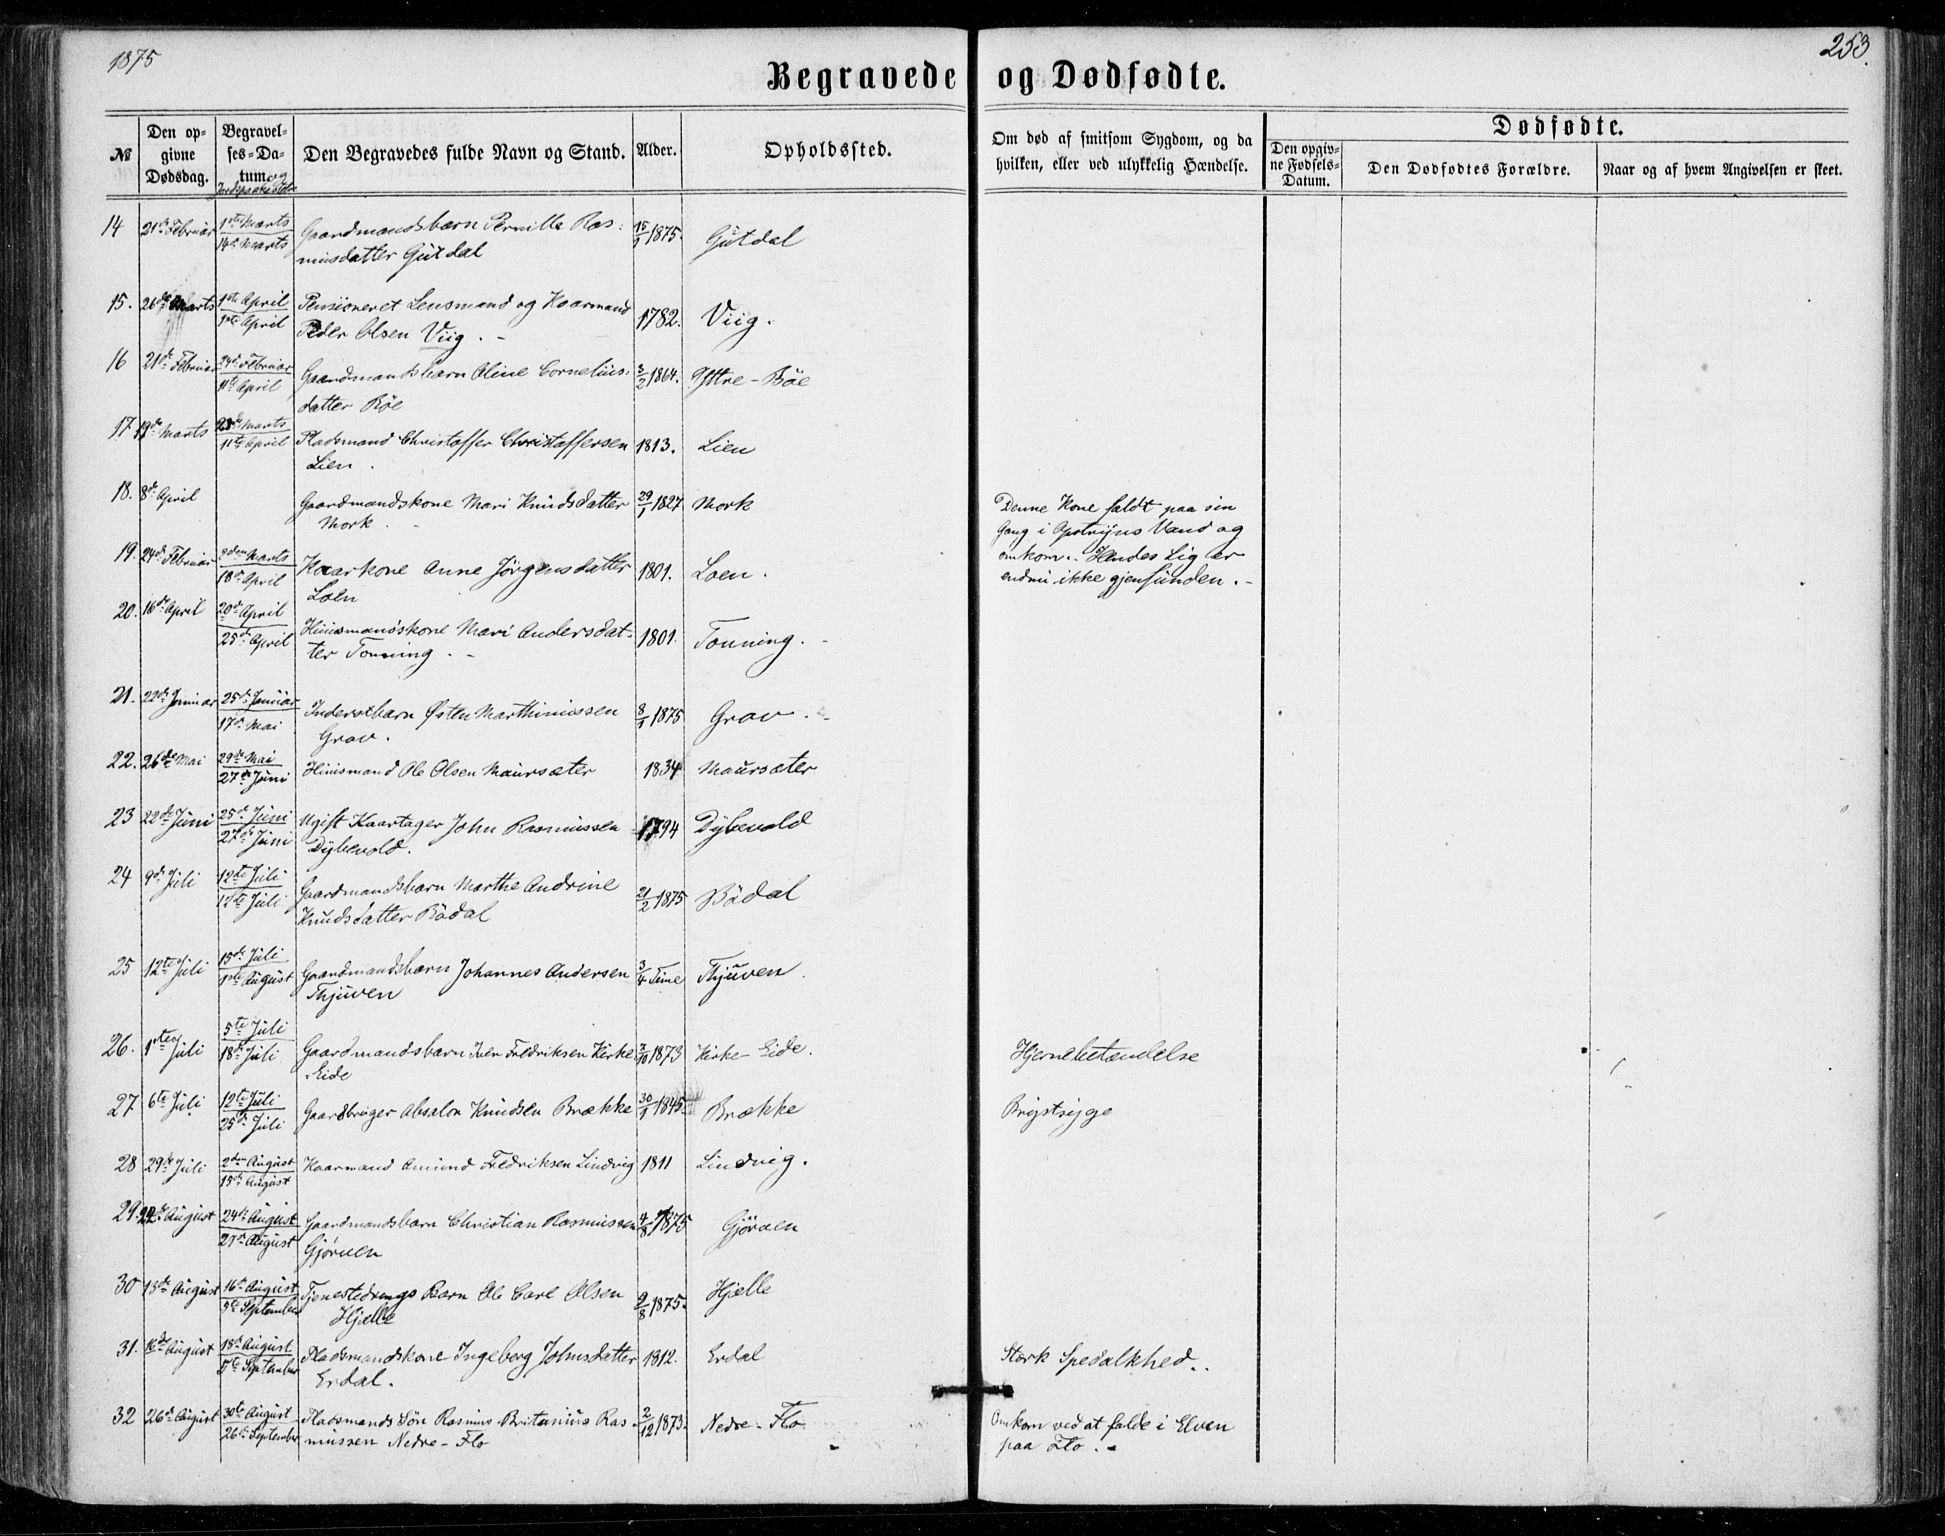 1875
253.
Begravede og Dødfødte.
№
Den op-
givne
Dødsdag.
Begravel-
ses-Da-
tum og
Jordpaakastelse
Den Begravedes fulde Navn og Stand.
Alder.
Opholdssted.
Om død af smitsom Sygdom, og da
hvilken, eller ved ulykkelig Hændelse.
Dødfødte.
Den opgiv-
ne Fødsels-
Datum.
Den Dødfødtes Forældre.
Naar og af hvem Angivelsen er skeet.
14 21de Februar 1ste Marts Gaardmandsbarn Pernille Ras- 15/1 1875. Gutdal
14de Marts musdatter Gutdal
15. 26de Marts 1ste April Pensioneret Lensmand og Kaarmand 1782. Viig.
1ste April Peder Olsen Viig. -
16 21de Februar 24de Februar Gaardmandsbarn Oline Cornelius- 3/2 1864. Yttre-Böe
11te April datter Böe
17 19de Marts 28de Marts Pladsmand Christoffer Christoffersen 1813. Lien
11te April Lien.
18. 8de April Gaardmandskone Mari Knudsdatter 29/1 1827 Mork Denne Kone faldt paa sin
Mork. Gang i Opstryns Vand og
omkom. Hendes Lig er
endnu ikke gjenfunden. -
19. 24de Februar 2den Marts Kaarkone Anne Jörgensdatter 1801. Loen.
18de April Loen
20. 16de April 20de April Huusmandskone Mari Andersdat- 1801. Tonning. -
25de April ter Tonning. -
21. 22de Januar 25de Januar Inderstbarn Østen Marthinussen 8/1 1875 Grov.
17de Mai Grov.
22. 26de Mai 29de Mai Huusmand Ole Olsen Maursæter 1834 Maursæter
27de Juni
23 22de Juni 25de Juni Ugift Kaartager John Rasmussen 1794 Dybevold
27de Juni Dybevold.
24 9de Juli 12te Juli Gaardmandsbarn Marthe Andrine 21/2 1875 Bödal
12te Juli Knudsdatter Bödal
25 12te Juli 15de Juli Gaardmandsbarn Johannes Andersen 3/4 Time Thjuven.
1ste August Thjuven
26. 1ste Juli 5te Juli Gaardmandsbarn Iver Fredriksen Kirke- 7/10 1873 Kirke-Eide. Hjernebetændelse
18de Juli -Eide
27 6te Juli 12te Juli Gaardbruger Absalon Knudsen Brække 30/1 1845 Brække Brystsyge
25de Juli
28 29de Juli 2den August Kaarmand Amund Fredriksen Lindvig 1811 Lindvig.
15de August
29. 22de August 24de August Gaardmandsbarn Christian Rasmussen 4/8 1875 Gjörven
29de August Gjørven
30 13de August 16de August Tjenestedrengs Barn Ole Carl Olsen 9/8 1875. Hjelle
5te September Hjelle
31. 16de August 18de August Pladsmandskone Ingeborg Johnsdatter 1812. Erdal Stærk Spedalkhed..
5te September Erdal.
32 26de August 30te August Pladsmands Sön Rasmus Britanius Ras- 2/12 1873. Nedre-Flo Omkom ved at falde i Elven
26de September mussen Nedre-Flo paa Flo. -